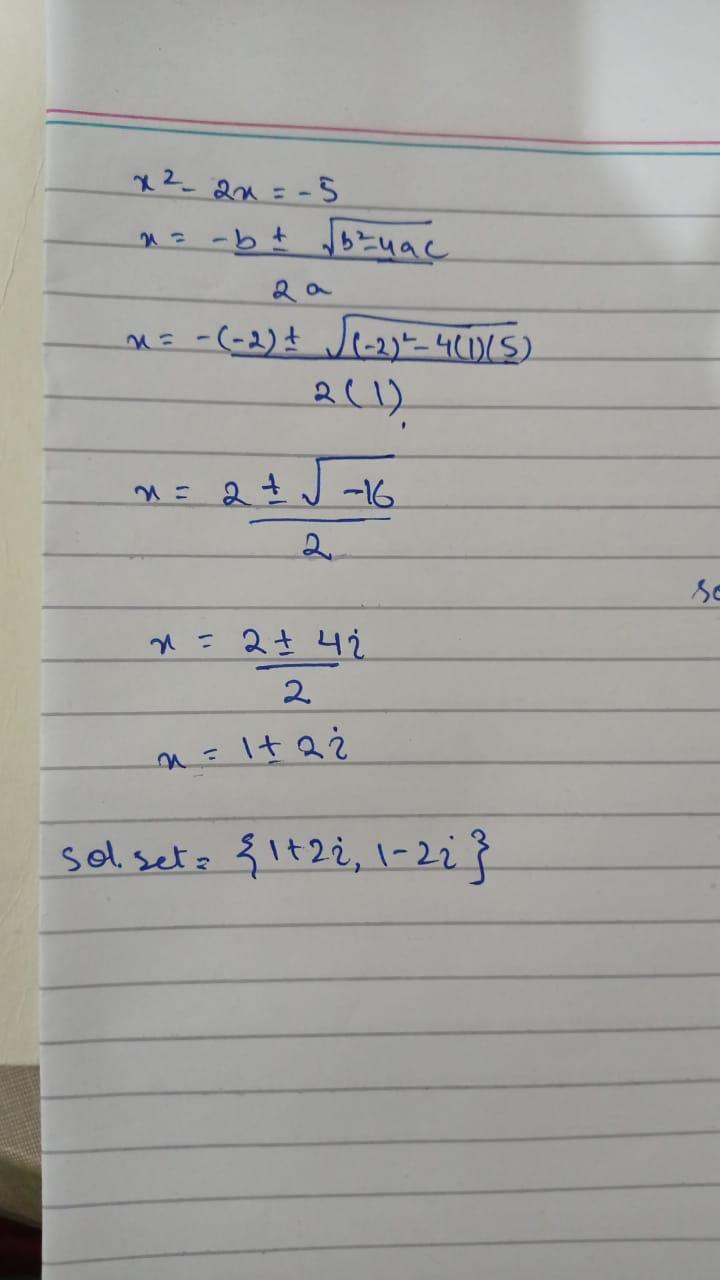 x² - 2x = -5
x = -b ± √b²-4ac
2a
x = -(-2) ± √(-2)² - 4(1)(5)
2(1)
x = 2 ± √-16
2
x = 2 ± 4i
2
x = 1 ± 2i
sol. set = {1+2i, 1-2i}